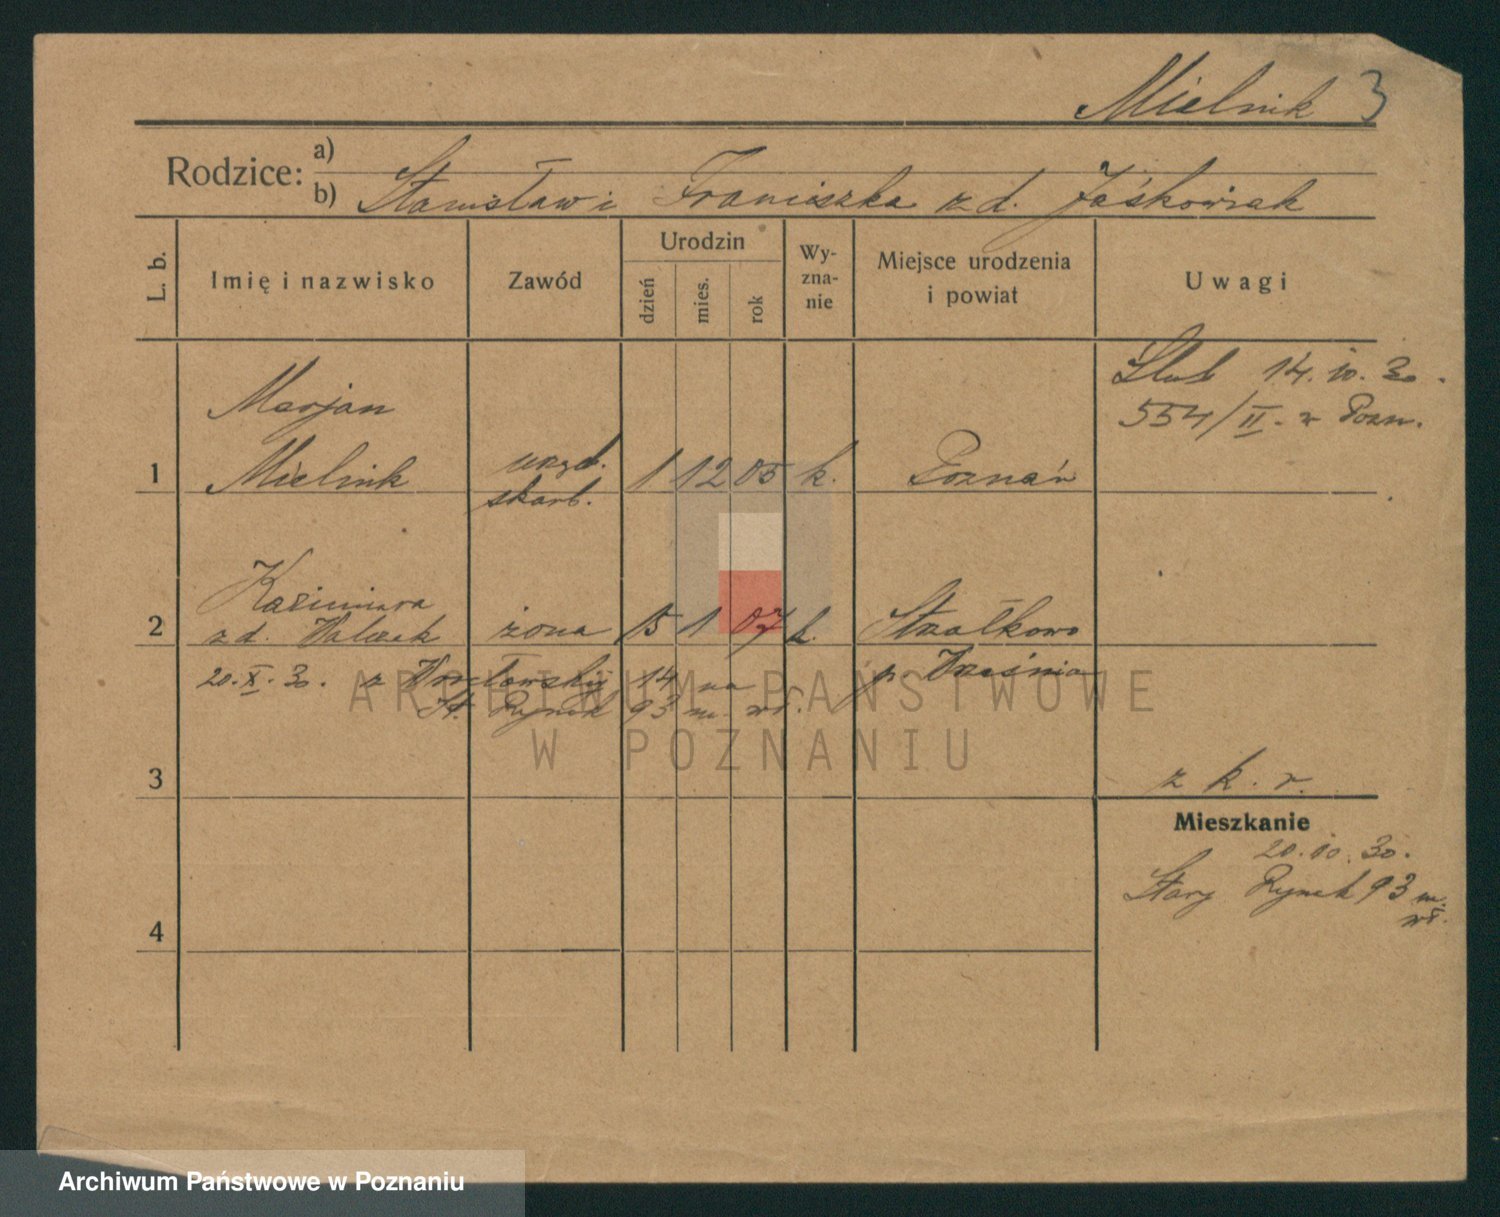 Mielnik 3
Rodzice:
a)
b) Stanisław i Franciszka z d. Jaśkowiak
L. b.
Imię i nazwisko
Zawód
Urodzin
dzień
mies.
rok
Wy-
zna-
nie
Miejsce urodzenia
i powiat
Uwagi
Ślub 14. 10. 30.
554/II. w Pozn.
Marjan
1 Mielnik urzęd. 1 12 05 k. Poznań
skarb.
Kazimiera
2 z d. Walczak żona 15 1 07 k. Strzałkowo
20. X. 30. z 14 na p. Września
St. Rynek 93 m. wł.
ARCHIWUM PAŃSTWOWE
W POZNANIU
3
z k. r.
Mieszkanie
20. 10. 30.
Stary Rynek 93 m.
wł.
4
Archiwum Państwowe w Poznaniu